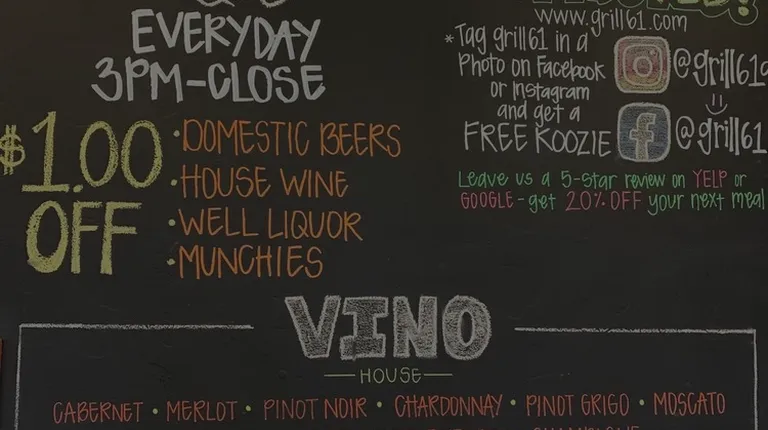 EVERYDAY
3PM-CLOSE
$1.00
OFF
• DOMESTIC BEERS
• HOUSE WINE
• WELL LIQUOR
• MUNCHIES
www.grill61.com
*Tag grill61 in a
Photo on Facebook
or Instagram
and get a
FREE KOOZIE
@grill61
@grill61
Leave us a 5-star review on YELP or
GOOGLE - get 20% OFF your next meal
VINO
HOUSE
CABERNET • MERLOT • PINOT NOIR • CHARDONNAY • PINOT GRIGO • MOSCATO